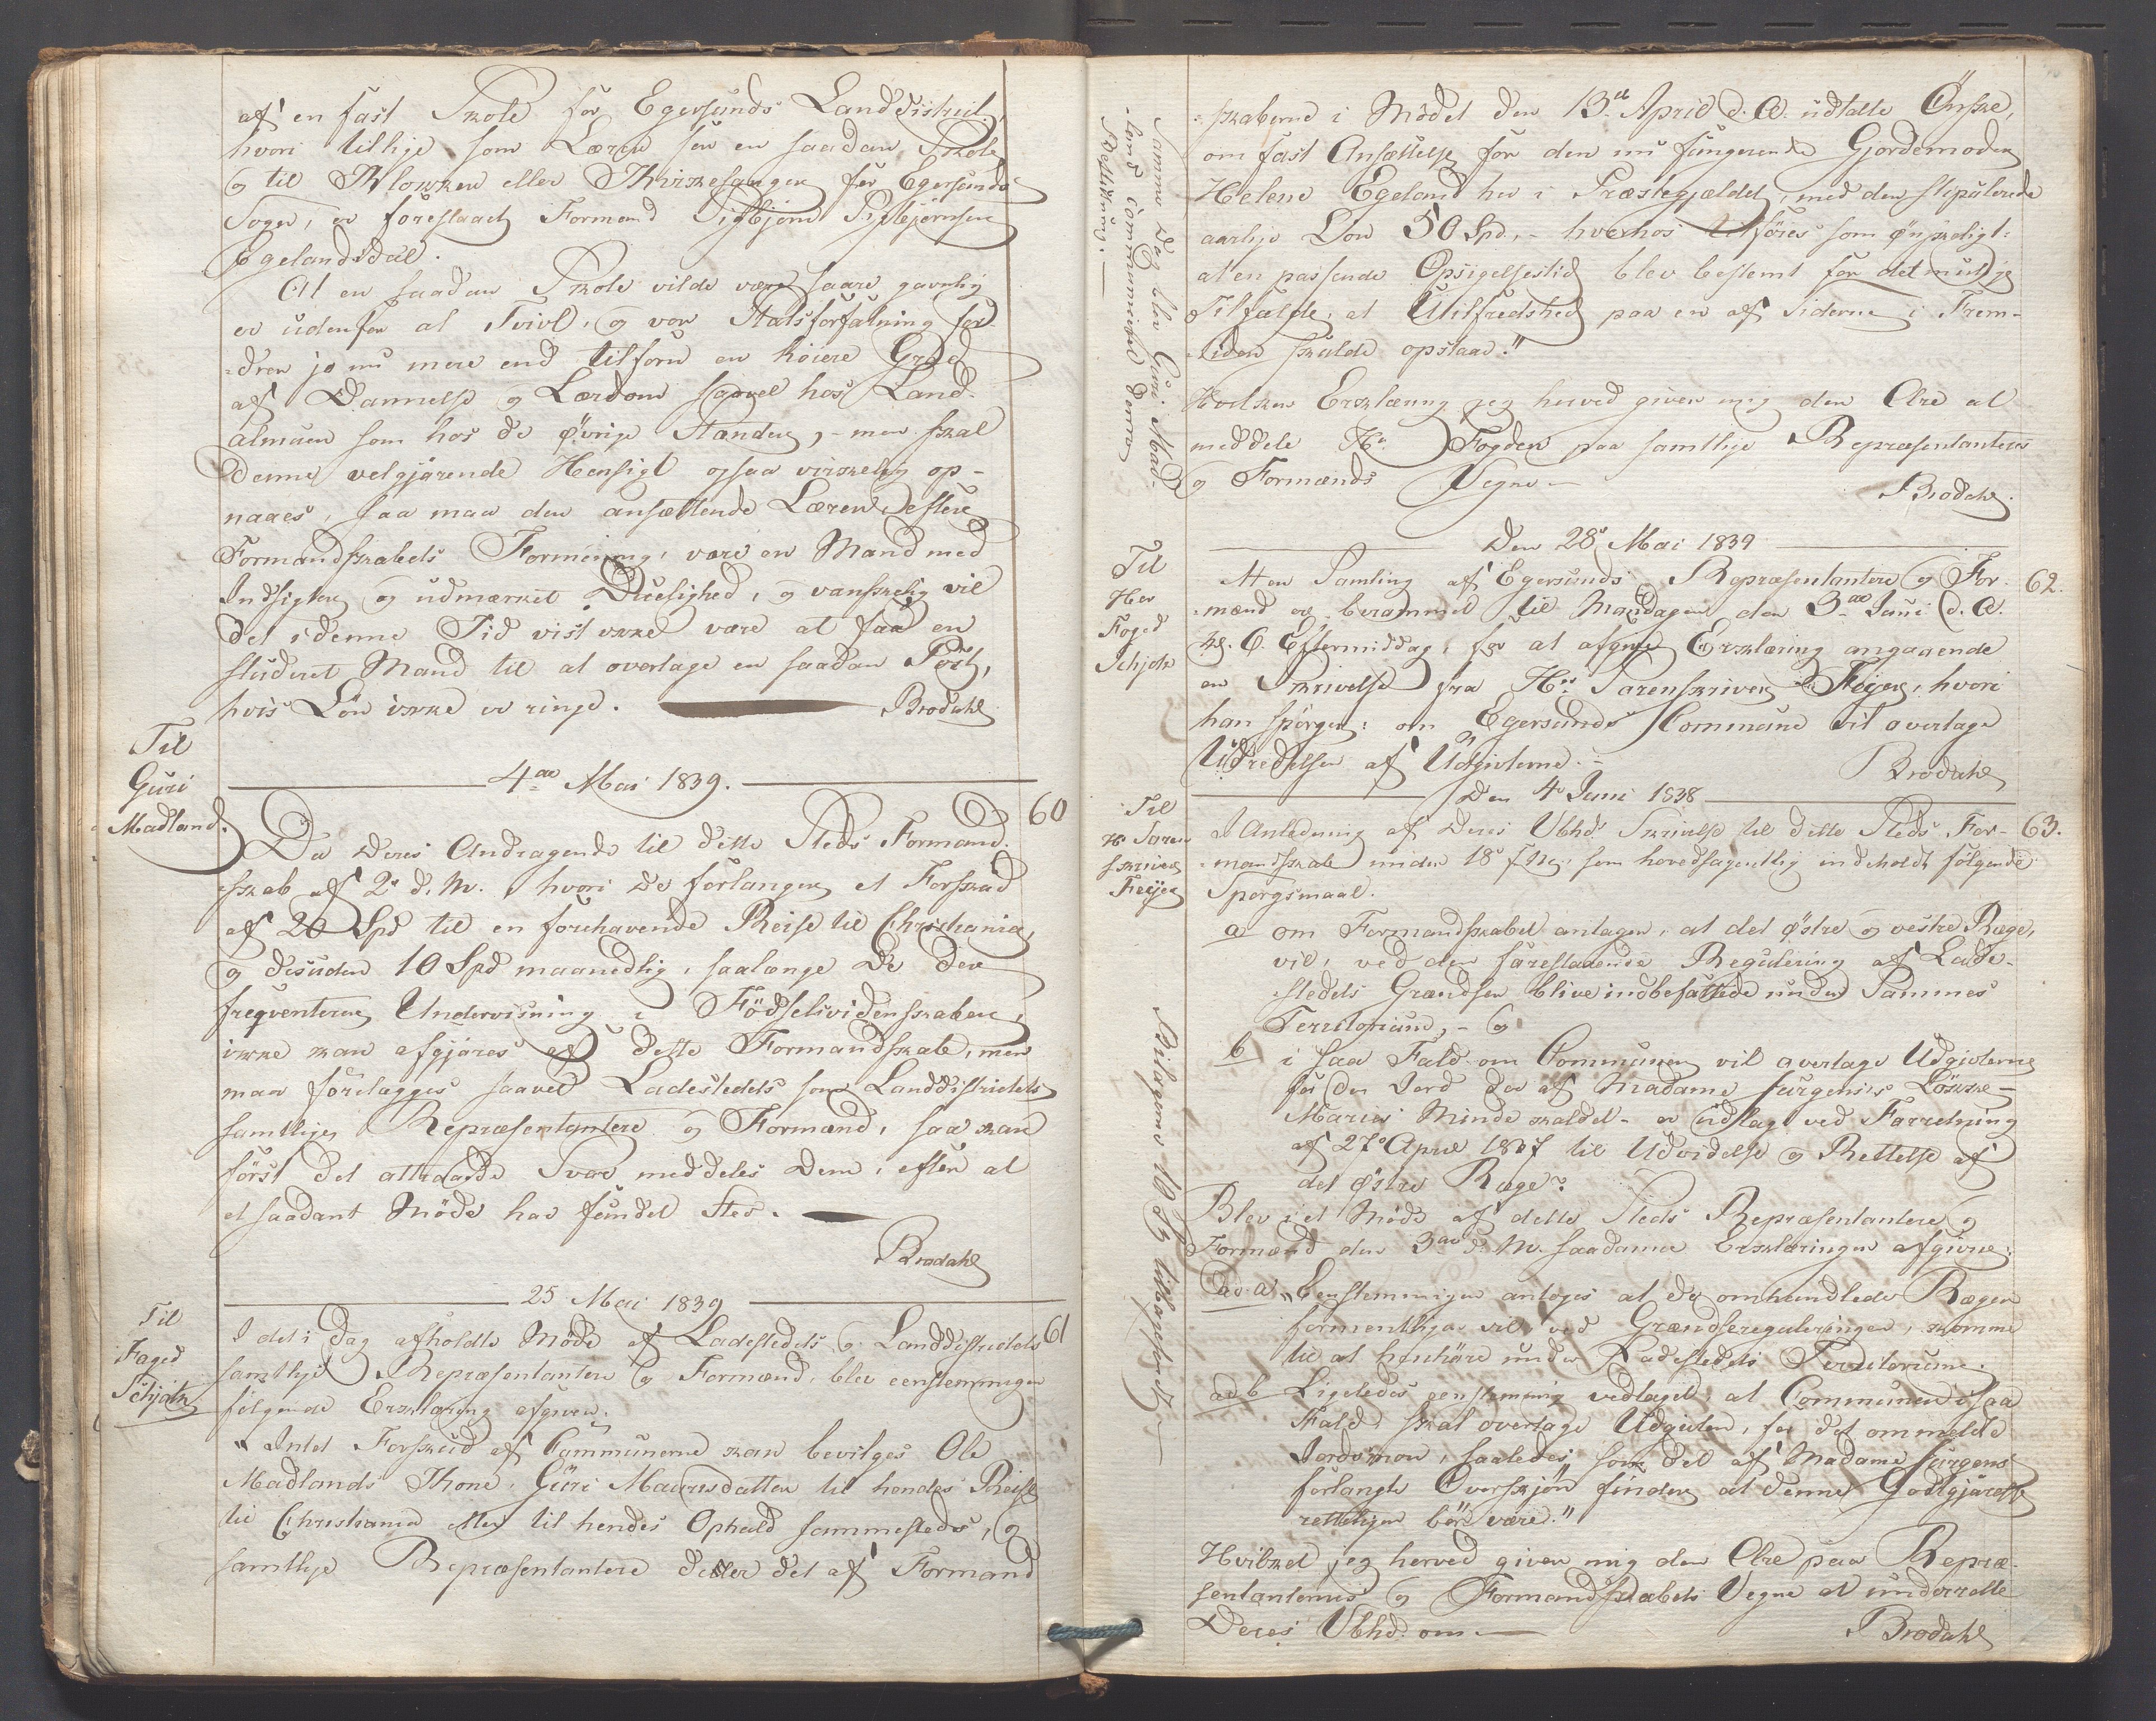 af en fast Skole for Egersunds Landdistrict,
hvori tillige som Lærer for en saadan Skole
og til Klokker eller Kirkesanger for Egersunds
Sogn, er foreslaaet Formand Sigbjørn Sigbjørnsen
Egelandsdal.
At en saadan Skole vilde være saare gavnlig
er udenfor al Tvivl, og vor Statsforfatning for-
drer jo nu mere end tilforn en høiere Grad
af Dannelse og Lærdom saavel hos Land-
almuen som hos de øvrige Stænder, - men skal
denne velgjørende Hensigt ogsaa virkelig op-
naaes, saa maa den ansættende Lærer, efter
Formandskabets Formening, være en Mand med
Indsigter og udmærket Duelighed, og vanskelig vil
det i denne Tid vist ikke være at faa en
studeret Mand til at overtage en saadan Post,
hvis Løn ikke er ringe.
Brodahl
Til
Guri
Madland.
4de Mai 1839.
60
Da Deres Andragende til dette Steds Formand-
skab af 2. d. M. hvori De forlanger et Forskud
af 20 Spd til en forehavende Reise til Christiania,
og desuden 10 Spd maanedlig, saalænge De der
freqventerer Underviisning i Fødselsvidenskaben,
ikke kan afgjøres af dette Formandskab, men
maa forelægges saavel Ladestedets som Landdistrictets
samtlige Repræsentantere og Formænd, saa kan
først det attraaede Svar meddeles Dem, efter at
et saadant Møde har fundet Sted.
Brodahl
Til
Foged
Schiøtz
25 Mai 1839
61
I det i Dag afholdte Møde af Ladestedets og Landdistrictets
samtlige Repræsentantere og Formænd, blev eenstemmigen
følgende Erklæring afgiven:
"Intet Forskud af Communerne kan bevilges Ole
Madlands Kone, Guri Mauritsdatter til hendes Reise
til Christiania eller til hendes Ophold sammesteds, og
samtlige Repræsentantere deeler det af Formand
skaberne i Mødet den 13de April d. A. udtalte Ønske,
om fast Ansættelse for den nu fungerende Gjordemoder
Helene Egeland her i Præstegjældet, med den stipulerede
aarlige Løn 50 Spd, - hvorhos tilføres som ønskeligt:
at en passende Opsigelsestid blev bestemt for det mulige
Tilfælde, at Utilfredshed paa en af Siderne i Frem-
tiden skulde opstaae."
Hvilken Erklæring jeg herved giver mig den Ære at
meddele Hr. Fogden paa samtlige Repræsentanters
og Formænds Vegne
Brodahl.
Samme Dag blev Guri Mad-
land communiceret denne
Beslutning.
Til
Her
Foged
Schiøtz
Den 28de Mai 1839
62.
At en Samling af Egersunds Repræsentantere og For-
mænd er berammet til Mandagen den 3die Juni d. A.
Kl. 6. Eftermiddag, for at afgive Erklæring angaaende
en Skrivelse fra Hr. Sorenskriver Feyer, hvori
han spørger: om Egersunds Commune vil overtage
Udredelsen af Udgivterne.
Brodahl
Til
Hr Soren
skriver
Feyer
Den 4de Juni 1838
63.
I Anledning af Deres Vbhds Skrivelse til dette Steds For-
mandskab under 18de f. M., som hovedsagentlig indeholdt følgende
Spørgsmaal.
a om Formandskabet antager, at det østre og vestre Ræge,
vid, ved den forestaaende Regulering af Lade-
stedets Grændser blive indbefattede under Sammes
Territorium, - og
b i saa Fald om Communen vil overtage Udgivterne
for den Jord der af Madame Jürgens's Løkke -
Maries Minde kaldet - er udlagt ved Forretning
af 27de April 1837 til Udvidelse og Rettelse af
det østre Ræge?
Blev i et Møde af dette Steds Repræsentantere og
Formænd den 3die d. M. saadanne Erklæringer afgivne:
ad. a. "Eenstemmigen antoges at de omhandlede Ræger
formentligen vil, ved Grændsereguleringen, komme
til at henhøre under Ladestedets Territorium.
ad b Ligeledes eenstemmig vedtaget, at Communen i saa
Fald, skal overtage Udgivten, for det ommeldte
Jordsmon, saaledes, som det af Madame Jürgens
forlangte Overskjøn finder, at denne Godtgjørelse
retteligen bør være."
Hvilket jeg herved giver mig den Ære paa Repræ-
sentanternes og Formandskabets Vegne at underrette
Deres Vbhd. om.
Brodahl